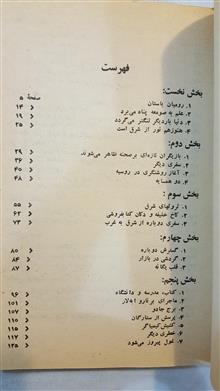 فهرست
بخش نخست: صفحهٔ ۵
۱. رومیان باستان ۱۴
۲. علم به صومعه پناه می‌برد ۱۹
۳. دنیا باردیگر لنگر می‌گردد ۲۵
۴. هنوزهم نور از شرق است
بخش دوم:
۱. بازیگران تازه‌ای برصحنه ظاهر می‌شوند ۲۹
۲. سفری دیگر ۳۶
۳. آغاز روشنگری در روسیه ۴۰
۴. دو همسایه ۴۸
بخش سوم:
۱. ترولهای شرق ۵۵
۲. کاخ خلیفه و دکان کتابفروشی ۶۲
۳. سفری دوباره از شرق به غرب ۷۳
بخش چهارم:
۱. گسترش دوباره ۸۰
۲. گردشی در بازار ۸۴
۳. قلب یگانه ۸۷
بخش پنجم:
۱. کتاب، مدرسه و دانشگاه ۹۶
۲. ماجرای برنارو ابه‌لار ۱۰۱
۳. برج جادو ۱۰۷
۴. پرسش از ستارگان ۱۱۰
۵. کشتی کیمیاگر ۱۱۵
۶. خطری دیگر ۱۱۷
۷. غول پیروز می‌شود ۱۲۵